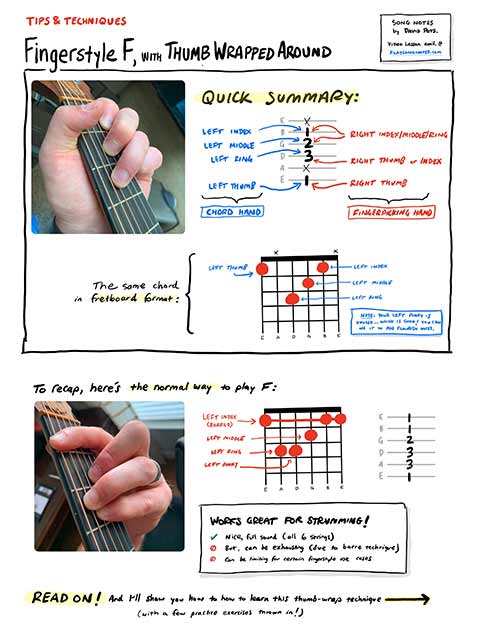 TIPS & TECHNIQUES
Fingerstyle F, WITH THUMB WRAPPED AROUND
SONG NOTES
by DAVID POTS.
VIDEO LESSON AVAIL @
PLAYSONGNOTES.COM
QUICK SUMMARY:
E X
B 1
G 2
D 3
A X
E 1
LEFT INDEX
LEFT MIDDLE
LEFT RING
LEFT THUMB
RIGHT INDEX/MIDDLE/RING
RIGHT THUMB or INDEX
RIGHT THUMB
CHORD HAND
FINGERPICKING HAND
The same chord
in fretboard format:
X X
LEFT THUMB
LEFT INDEX
LEFT MIDDLE
LEFT RING
E A D G B E
NOTE: YOUR LEFT PINKY IS
UNUSED... WHICH IS GOOD! YOU CAN
USE IT TO ADD FLOURISH NOTES.
To recap, here's the normal way to play F:
LEFT INDEX
(BARRE)
LEFT MIDDLE
LEFT RING
LEFT PINKY
E A D G B E
E 1
B 1
G 2
D 3
A 3
E 1
WORKS GREAT FOR STRUMMING!
✓ Nice, full sound (all 6 strings)
But, can be exhausting (due to barre technique)
Can be limiting for certain fingerstyle use cases
READ ON! And I'll show you how to how to learn this thumb-wrap technique
(with a few practice exercises thrown in!)